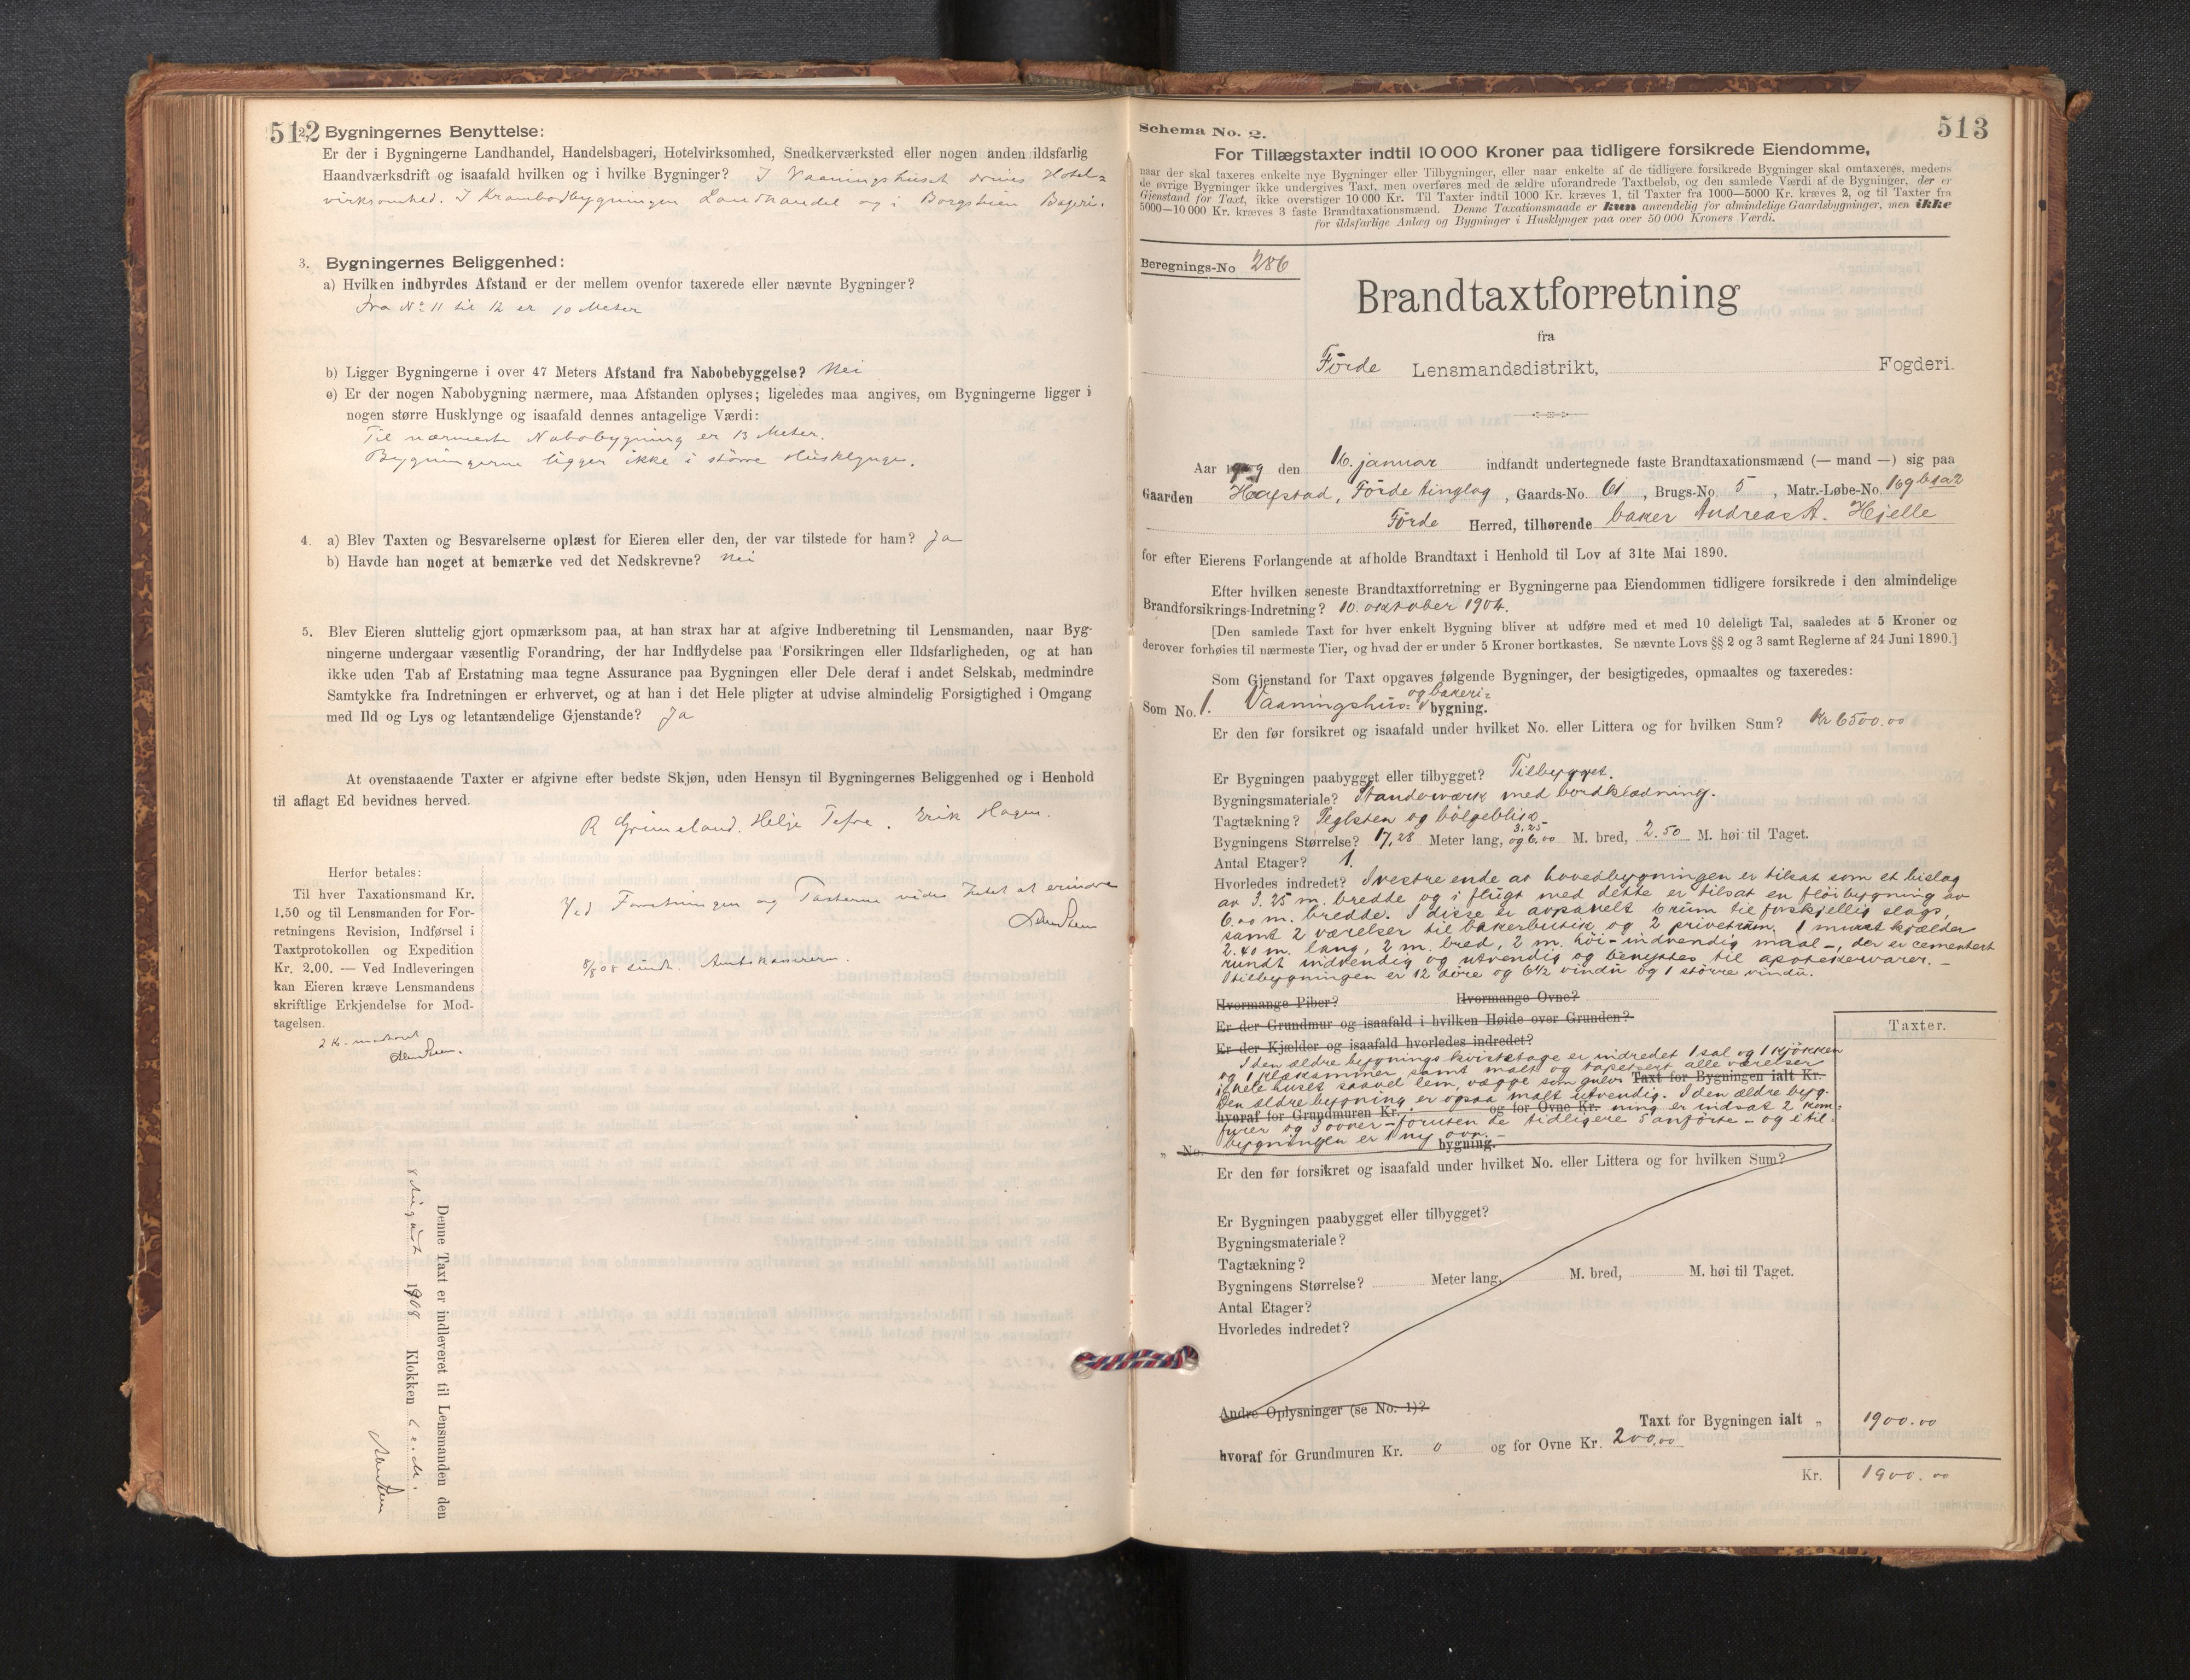 512
2. Bygningernes Benyttelse:
Er der i Bygningerne Landhandel, Handelsbageri, Hotelvirksomhed, Snedkerværksted eller nogen anden ildsfarlig
Haandværksdrift og isaafald hvilken og i hvilke Bygninger? I Vaaningshuset drives Hotel-
virksomhed. I Krambodbygningen Landhandel og i Borgstuen Bageri.
3. Bygningernes Beliggenhed:
a) Hvilken indbyrdes Afstand er der mellem ovenfor taxerede eller nævnte Bygninger?
Fra No 11 til 12 er 10 Meter
b) Ligger Bygningerne i over 47 Meters Afstand fra Nabobebyggelse? Nei
c) Er der nogen Nabobygning nærmere, maa Afstanden oplyses; ligeledes maa angives, om Bygningerne ligger i
nogen større Husklynge og isaafald dennes antagelige Værdi:
Til nærmeste Nabobygning er 13 Meter.
Bygningerne ligger ikke i større Husklynge.
4. a) Blev Taxten og Besvarelserne oplæst for Eieren eller den, der var tilstede for ham? Ja
b) Havde han noget at bemærke ved det Nedskrevne? Nei
5. Blev Eieren sluttelig gjort opmærksom paa, at han strax har at afgive Indberetning til Lensmanden, naar Byg-
ningerne undergaar væsentlig Forandring, der har Indflydelse paa Forsikringen eller Ildsfarligheden, og at han
ikke uden Tab af Erstatning maa tegne Assurance paa Bygningen eller Dele deraf i andet Selskab, medmindre
Samtykke fra Indretningen er erhvervet, og at han i det Hele pligter at udvise almindelig Forsigtighed i Omgang
med Ild og Lys og letantændelige Gjenstande? Ja
At ovenstaaende Taxter er afgivne efter bedste Skjøn, uden Hensyn til Bygningernes Beliggenhed og i Henhold
til aflagt Ed bevidnes herved.
R Grimeland. Helje Tefre. Erik Hagen.
Herfor betales:
Til hver Taxationsmand Kr.
1.50 og til Lensmanden for For-
retningens Revision, Indførsel i
Taxtprotokollen og Expedition
Kr. 2.00. — Ved Indleveringen
kan Eieren kræve Lensmandens
skriftlige Erkjendelse for Mod-
tagelsen.
2 Kr. modtaget
Ved Forretningen og Taxterne vides Intet at erindre
8/8 08 sendt Amtskassereren.
Denne Taxt er indleveret til Lensmanden den
8 August 1908 Klokken
513
Schema No. 2.
For Tillægstaxter indtil 10 000 Kroner paa tidligere forsikrede Eiendomme,
naar der skal taxeres enkelte nye Bygninger eller Tilbygninger, eller naar enkelte af de tidligere forsikrede Bygninger skal omtaxeres, medens
de øvrige Bygninger ikke undergives Taxt, men overføres med de ældre uforandrede Taxtbeløb, og den samlede Værdi af de Bygninger, der er
Gjenstand for Taxt, ikke overstiger 10 000 Kr. Til Taxter indtil 1000 Kr. kræves 1, til Taxter fra 1000—5000 Kr. kræves 2, og til Taxter fra
5000—10 000 Kr. kræves 3 faste Brandtaxationsmænd. Denne Taxationsmaade er kun anvendelig for almindelige Gaardsbygninger, men ikke
for ildsfarlige Anlæg og Bygninger i Husklynger paa over 50 000 Kroners Værdi.
Beregnings-No 286
Brandtaxtforretning
fra
Förde Lensmandsdistrikt, Fogderi.
Aar 1909 den 16. januar indfandt undertegnede faste Brandtaxationsmænd (— mand —) sig paa
Gaarden Hafstad, Förde tinglag, Gaards-No. 61, Brugs-No. 5, Matr.-Løbe-No. 169 b 1 a 2
Förde Herred, tilhørende baker Andreas A. Hjelle
for efter Eierens Forlangende at afholde Brandtaxt i Henhold til Lov af 31te Mai 1890.
Efter hvilken seneste Brandtaxtforretning er Bygningerne paa Eiendommen tidligere forsikrede i den almindelige
Brandforsikrings-Indretning? 10. oktober 1904.
[Den samlede Taxt for hver enkelt Bygning bliver at udføre med et med 10 deleligt Tal, saaledes at 5 Kroner og
derover forhøies til nærmeste Tier, og hvad der er under 5 Kroner bortkastes. Se nævnte Lovs §§ 2 og 3 samt Reglerne af 24 Juni 1890.]
Som Gjenstand for Taxt opgaves følgende Bygninger, der besigtigedes, opmaaltes og taxeredes:
Som No. 1. Vaaningshus- og bakeri- bygning.
Er den før forsikret og isaafald under hvilket No. eller Littera og for hvilken Sum? Kr 6500.00
Er Bygningen paabygget eller tilbygget? Tilbygget.
Bygningsmateriale? Standerværk med bordklædning.
Tagtækning? Teglsten og bölgeblik
Bygningens Størrelse? 17,28 Meter lang, 3,25 og 6,00 M. bred, 2.50 M. høi til Taget.
Antal Etager? 1.
Hvorledes indredet? I vestre ende av hovedbygningen er tilsat som et bislag
av 3.25 m. bredde og i flugt med dette er tilsat en flöibygning av
6.00 m. bredde. I disse er avpanelt 6 rum til forskjellig slags,
samt 2 værelser til bakerbutik og 2 privetrum. 1 muret kjælder
2.40 m. lang, 2 m. bred, 2 m. höi – indvendig maal –, der er cementert
rundt indvendig og utvendig og benyttes til apotekervarer. –
I tilbygningen er 12 döre og 6½ vindu og 1 större vindu.
Hvormange Piber? Hvormange Ovne?
Er der Grundmur og isaafald i hvilken Høide over Grunden?
Er der Kjælder og isaafald hvorledes indredet?
Taxter.
I den ældre bygnings kvistetage er indredet 1 sal og 1 kjökken
og 1 klækammer, samt malt og tapetsert alle værelser
i hele huset saavel lem, vægge som gulv. Taxt for Bygningen ialt Kr.
Den ældre bygning er ogsaa malt utvendig. I den ældre byg-
hvoraf for Grundmuren Kr. og for Ovne Kr. ning er indsat 2 kom-
fyrer og 3 ovner – foruten de tidligere 5 anförte – og i til-
bygningen er 1 ny ovn. –
„ No. bygning.
Er den før forsikret og isaafald under hvilket No. eller Littera og for hvilken Sum?
Er Bygningen paabygget eller tilbygget?
Bygningsmateriale?
Tagtækning?
Bygningens Størrelse? Meter lang, M. bred, M. høi til Taget.
Antal Etager?
Hvorledes indredet?
Andre Oplysninger (se No. 1)?
Taxt for Bygningen ialt „ 1900.00
hvoraf for Grundmuren Kr. 0 og for Ovne Kr. 200,00
Kr. 1900.00